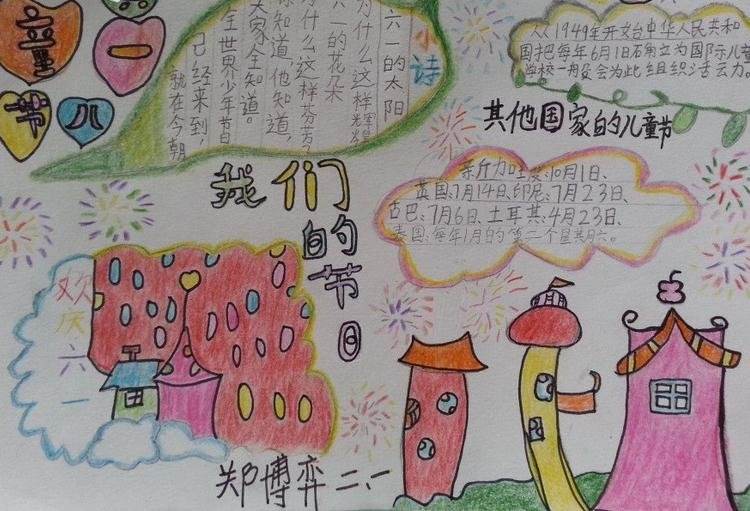 六一
童
节
小诗
六一的太阳
为什么这样辉煌
六一的花朵
为什么这样芬芳
你知道,他知道,
大家全知道。
全世界少年节日
已经来到,
就在今朝
从1949年开始台中华人民共和
国把每年6月1日石角立为国际儿童
学校一般会为此组织活云力。
其他国家的儿童节
新加坡:10月1日、
英国:7月14日、印尼:7月23日、
古巴:7月6日、土耳其:4月23日、
泰国:每年1月的第二个星其月六。
我们的节日
欢庆六一
郑博弈 二、一